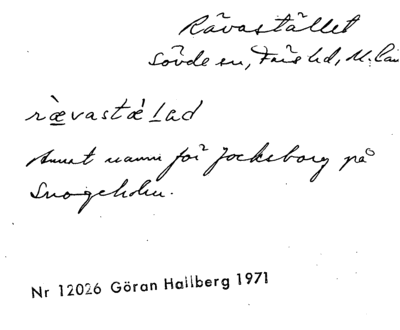 Rävastället
Sövde sn, Färs hd, M. län
rævastæ̀lad
Annat namn för Jocksborg på
Snogeholm.
Nr 12026 Göran Hallberg 1971